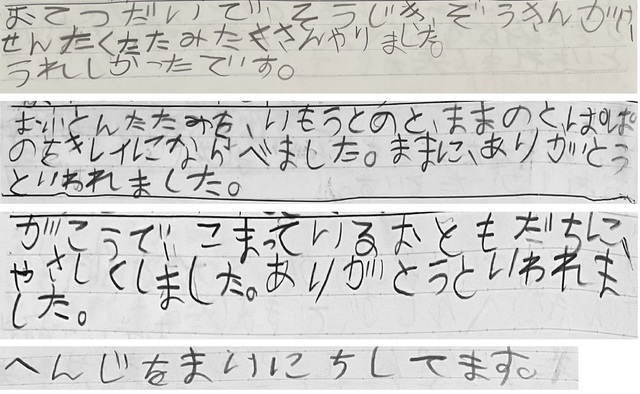 おてつだいで、そうじき、ぞうきんがけ
せんたくたたみたくさんやりました。
うれしかったです。
おふとんたたみを、いもうとのと、ままのと、ぱぱ
のをキレイにならべました。ままに、ありがとう
といわれました。
がこうで、こまっているおともだちに、
やさしくしました。ありがとうといわれま
した。
へんじをまいにちしてます。